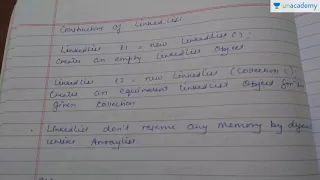 unacademy
Constructors of LinkedList:
LinkedList l1 = new LinkedList();
Creates an empty LinkedList Object
LinkedList l2 = new LinkedList (Collection c);
Creates an equivalent LinkedList Object for
given Collection
• LinkedList don't reserve any memory by
Arraylist